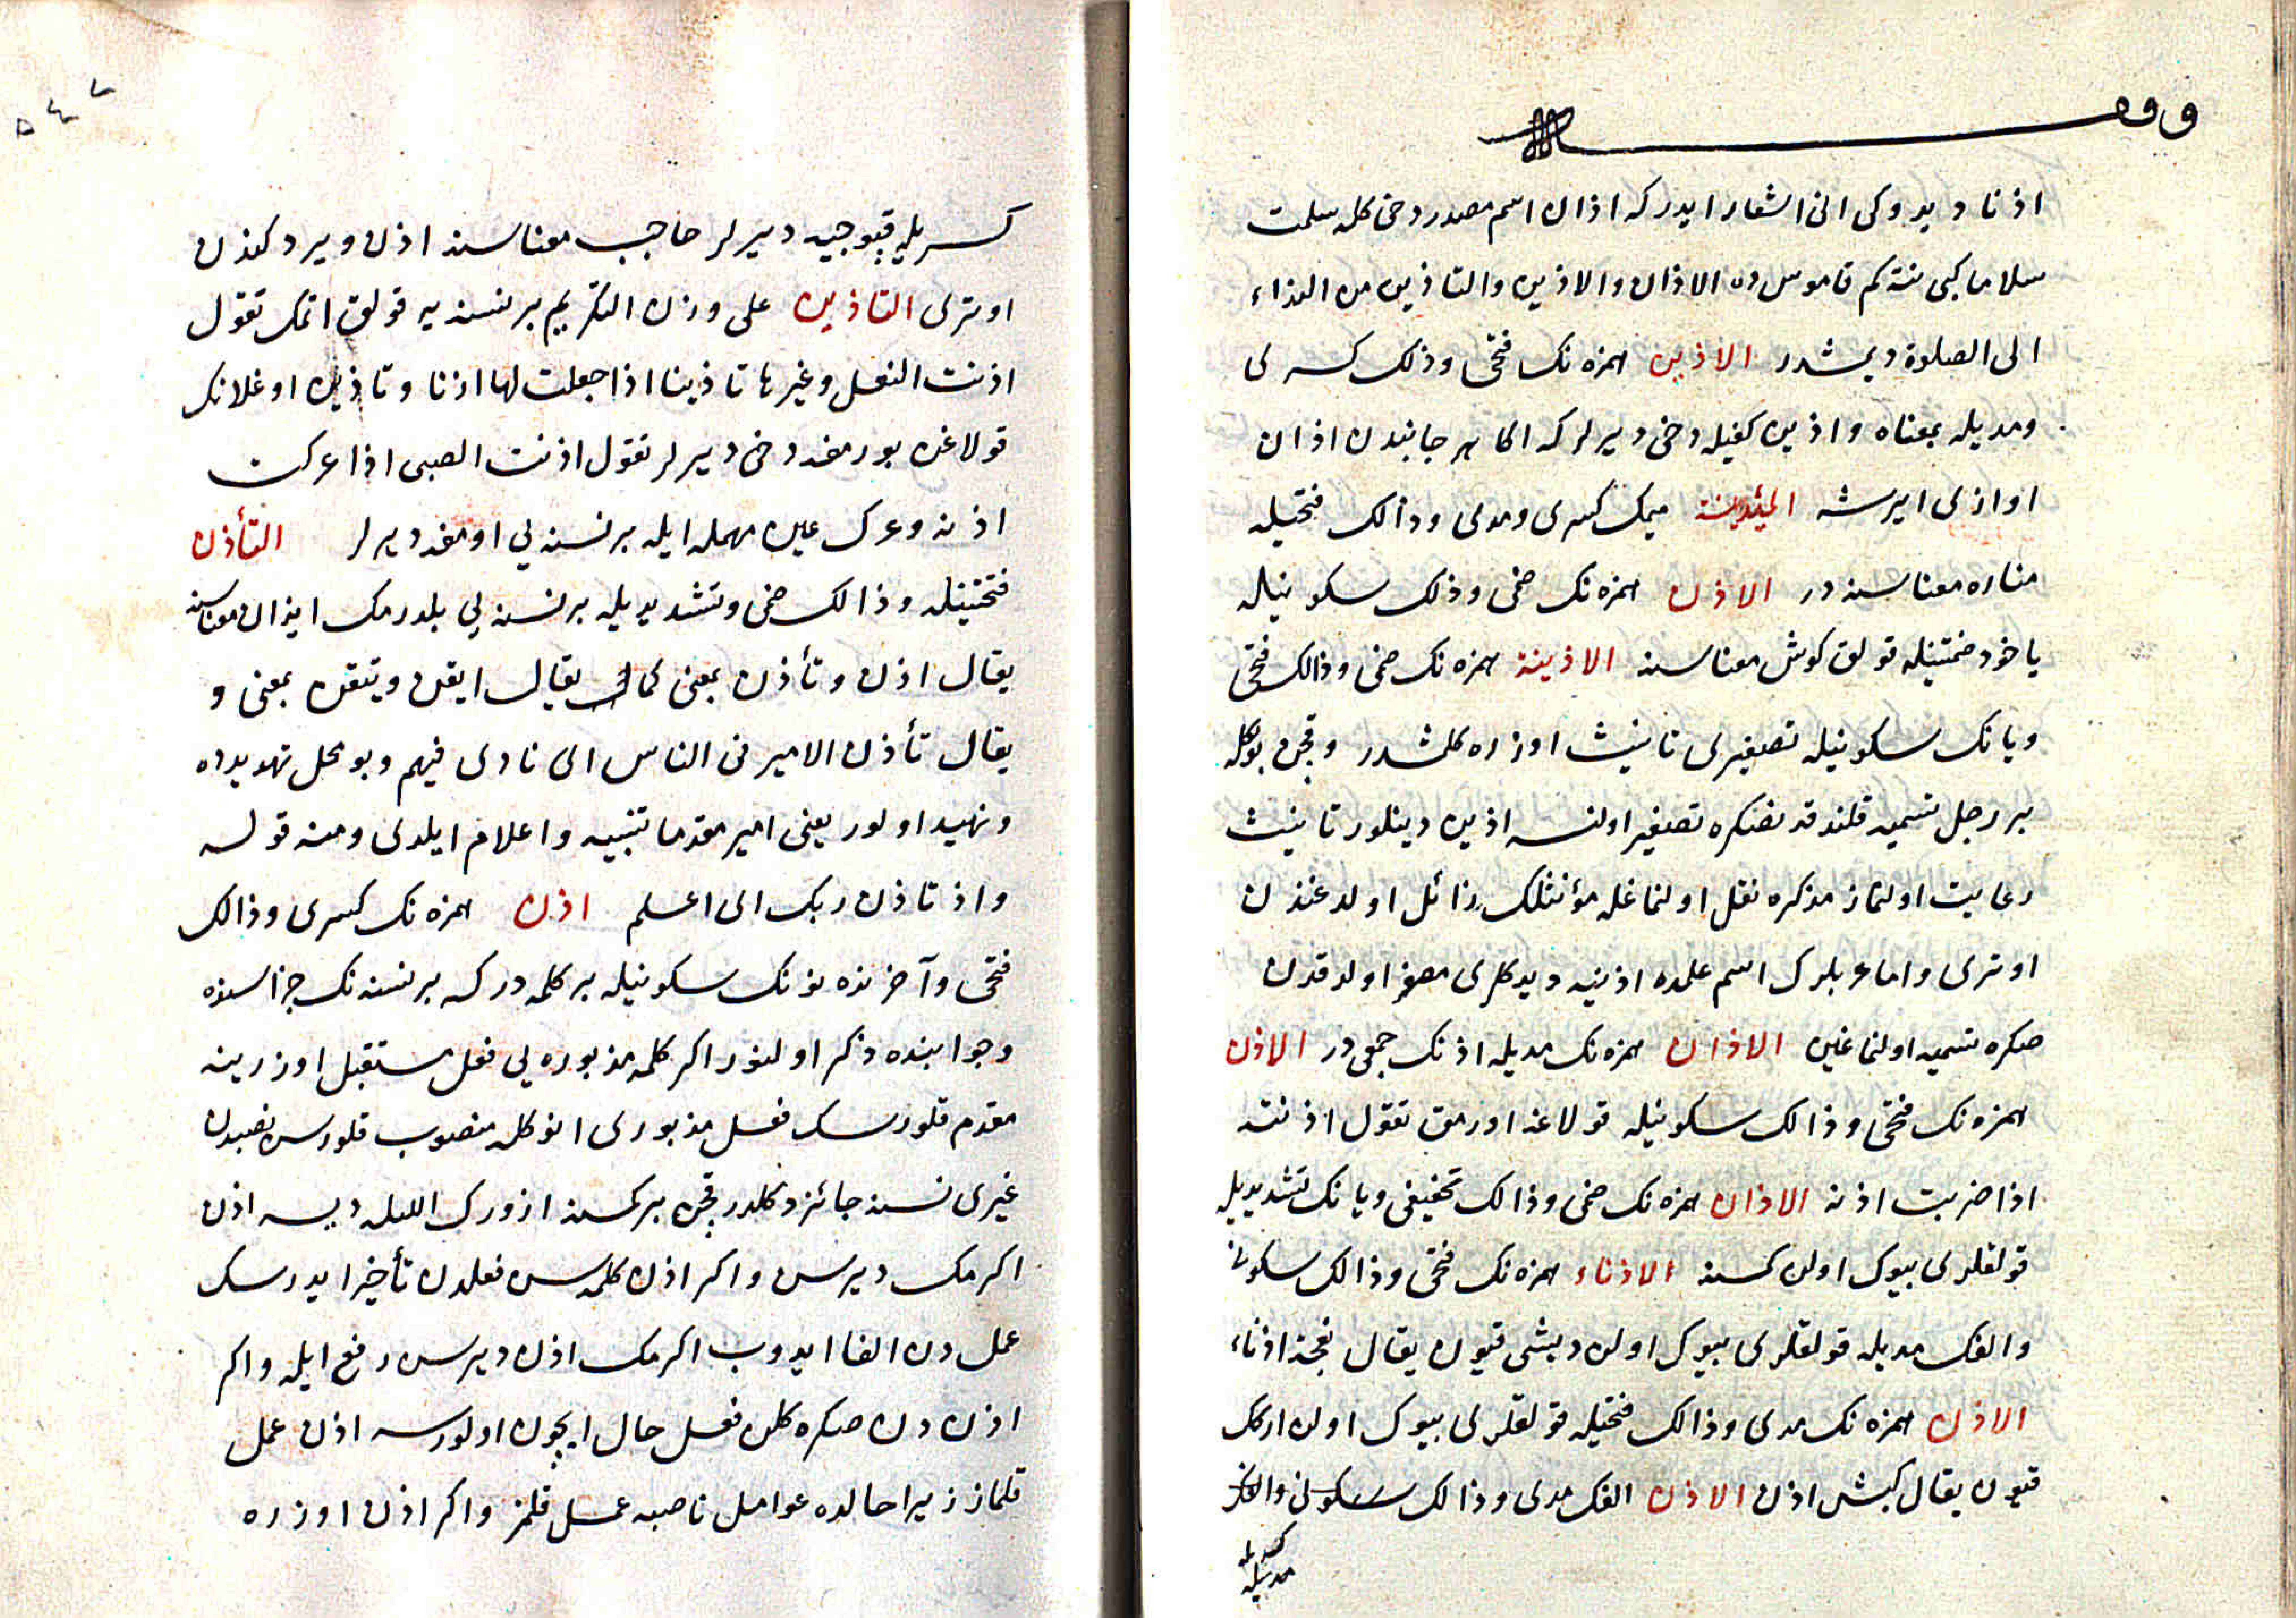 وقف
اذنا ديدوكى انى اشعار ايدركه اذان اسم مصدر دخى كله سلمت
سلاما كبى نتكم قاموسده الاذان والاذين والتاذين من النداء
الى الصلوة ديمشدر الاذين همزه نك فتحى وذلك كسرى
ومديله بمعناه واذين كفيله دخى ديرلركه اكا هر جانبدن اذان
اوازى ايرشه المئذنة ميمك كسرى ومدى وذالك فتحيله
مناره معناسنه در الاذن همزه نك ضمى وذلك سكونيله
ياخود ضمتينله قولق كوش معناسنه الاذينة همزه نك ضمى وذالك فتحى
ويانك سكونيله تصغيرى تانيث اوزره كلمشدر وقچن بوكله
بر رجل تسميه قلندقدنصكره تصغير اولنسه اذين دينلور تانيث
رعايت اولنماز مذكره نقل اولنماغله مؤنثلك زائل اولدغندن
اوترى واما عربلرك اسم علمده اذينه ديدكلرى مصغر اولدقدن
صكره تسميه اولنماغين الاذان همزه نك مديله اذنك جمعى در الاذن
همزه نك فتحى وذالك سكونيله قولاغه اورمق تقول اذنته
اذا ضربت اذنه الاذان همزه نك ضمى وذالك تخفيفى ويانك تشديديله
قولقلرى بيوك اولن كسنه الاذناء همزه نك فتحى وذالك سكونى
والفك مديله قولقلرى بيوك اولن ديشى قيون يقال نعجة اذناء
الاذن همزه نك مدى وذالك فتحيله قولقلرى بيوك اولن اركك
قيون يقال كبش اذن الاذن الفك مدى وذالك سكونى والفك
كسريله
مديله
٥٤٧
كسريله قپوجيه ديرلر حاجب معناسنه اذن ويردكندن
اوترى التاذين على وزن التكريم برنسنه يه قولق اتمك تقول
اذنت النعل وغيرها تاذينا اذا جعلت لها اذنا وتاذين اوغلانك
قولاغن بورمغه دخى ديرلر تقول اذنت الصبى اذا عركت
اذنه وعرك عين مهمله ايله برنسنه يي اومغه ديرلر التأذن
فتحتينله وذالك ضمى وتشديديله برنسنه يي بلدرمك ايذان معناسنه
يقال اذن وتأذن بمعنى كما يقال ايقن وتيقن بمعنى و
يقال تأذن الامير فى الناس اى نادى فيهم وبو محل تهديدده
ونهيد اولور يعنى امير مقدما تنبيه واعلام ايلدى ومنه قوله
واذ تاذن ربك اى اعلم اذن همزه نك كسرى وذالك
فتحى وآخرنده نونك سكونيله بر كلمه دركه برنسنه نك جزاسنده
وجوابنده ذكر اولنور اكر كلمه مذبوره يي فعل مستقبل اوزرينه
مقدم قلورسك فعل مذبورى انوكله منصوب قلورسن نصبدن
غيرى نسنه جائز دكلدر قچن بر كسنه ازورك الليله ديسه اذن
اكرمك ديرسن واكر اذن كلمه سن فعلدن تأخير ايدرسك
عملدن الغا ايدوب اكرمك اذن ديرسن رفع ايله واكر
اذن دن صكره كلن فعل حال ايچون اولورسه اذن عمل
قلماز زيرا حالده عوامل ناصبه عمل قلمز واكر اذن اوزره